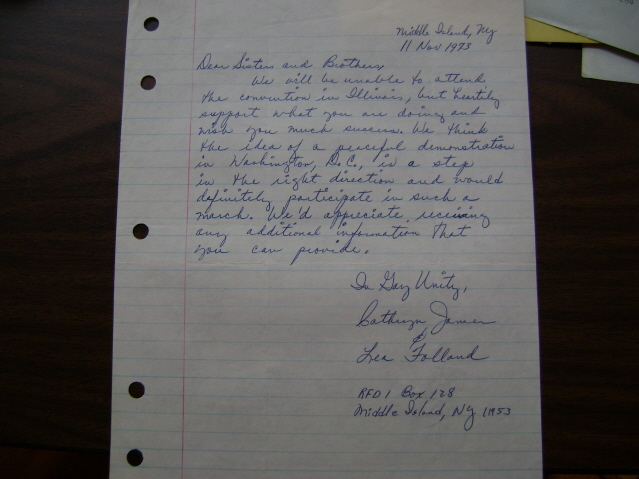 Middle Island, Ny
11 Nov 1973
Dear Sisters and Brothers,
We will be unable to attend
the convention in Illinois, but heartily
support what you are doing and
wish you much success. We think
the idea of a peaceful demonstration
in Washington, D.C., is a step
in the right direction and would
definitely participate in such a
march. We'd appreciate receiving
any additional information that
you can provide.
In Gay Unity,
Cathryn James
&
Lea Folland
RFD 1 Box 128
Middle Island, NY 11953